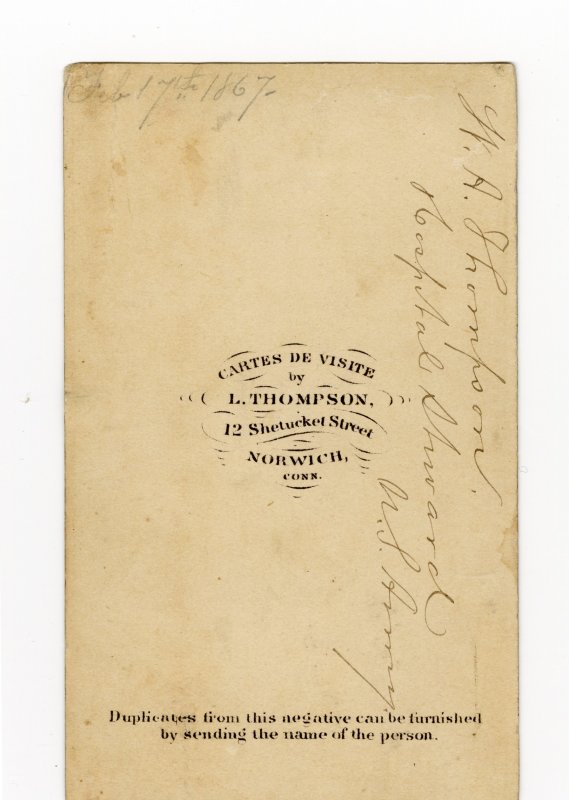 Feb 17th 1867-
W. A. Thompson.
Hospital Steward
U.S. Army
CARTES DE VISITE
by
L. THOMPSON,
12 Shetucket Street
NORWICH,
CONN.
Duplicates from this negative can be furnished
by sending the name of the person.